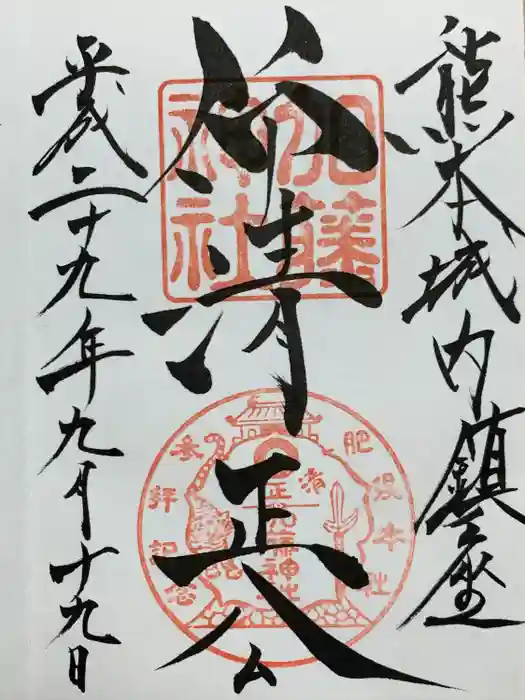 熊本城内鎮座
仰清正公
平成二十九年九月十九日
加藤神社
肥後本社
参拝記念